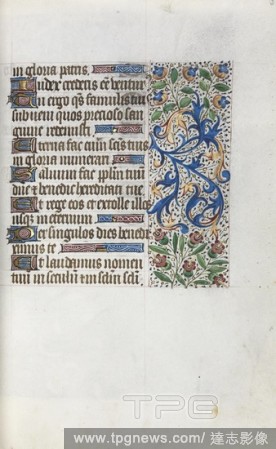 in gloria patris.
Iudex crederis eē ventur
Te ergo qs famulis tui
subveni quos precioso san
guine redemisti
Eterna fac cum sctis tuis
in gloria munerari
Salvum fac pplm tuū
dne et benedic hereditati tue
Et rege eos et extolle illos
usqz in eternum
Per singulos dies benedi
cimus te
Et laudamus nomen
tuū in seculū et in sclm scli.
TPG
www.tpgnews.com/達志影像